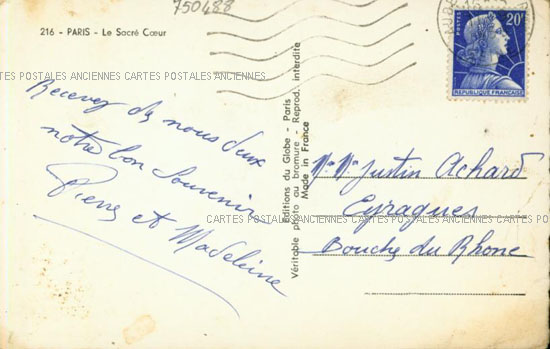 750488
216 - PARIS - Le Sacré Cœur
POSTES
20F
REPUBLIQUE FRANÇAISE
CARTES POSTALES ANCIENNES CARTES POSTALES ANCIENNES
Recevez de nous deux
notre bon Souvenir
Pierre et Madeleine
Editions du Globe - Paris
Véritable photo au bromure - Reprod. interdite
Made in France
Mr Mme Justin Achard
Eyragues
CARTES POSTALES ANCIENNES CARTES POSTALES ANCIENNES
Bouches du Rhone